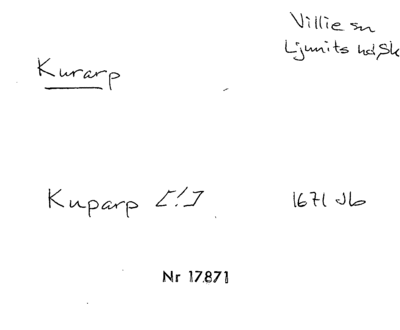 Villie sn
Ljunits hd, Sk
Kurarp
Kuparp [!]
1671 Jb
Nr 17.871